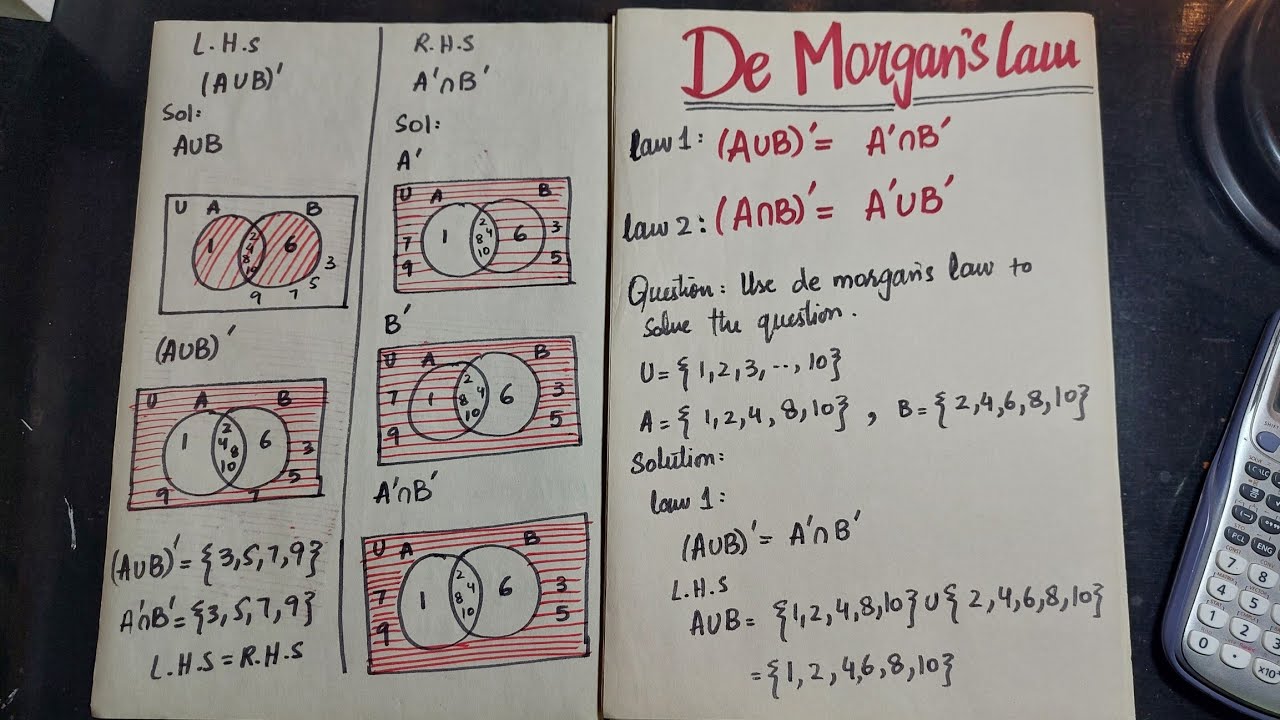 L.H.S
(A∪B)′
Sol:
A∪B
U A B
1 2 4 8 10 6
3
5
7
9
(A∪B)′
U A B
1 2 4 8 10 6
3
5
7
9
(A∪B)′ = {3,5,7,9}
A′∩B′ = {3,5,7,9}
L.H.S = R.H.S
R.H.S
A′∩B′
Sol:
A′
U A B
7 1 2 4 8 10 6 3
9 5
B′
U A B
7 1 2 4 8 10 6 3
9 5
A′∩B′
U A B
7 1 2 4 8 10 6 3
9 5
De Morgan's Law
law 1: (A∪B)′ = A′∩B′
law 2: (A∩B)′ = A′∪B′
Question: Use de morgan's law to
solve the question.
U = {1,2,3,..,10}
A = {1,2,4,8,10} , B = {2,4,6,8,10}
Solution:
law 1:
(A∪B)′ = A′∩B′
L.H.S
A∪B = {1,2,4,8,10} ∪ {2,4,6,8,10}
= {1,2,4,6,8,10}
CALC
PGL
ENG
7 8
4 5
1 2 3
0 . ×10